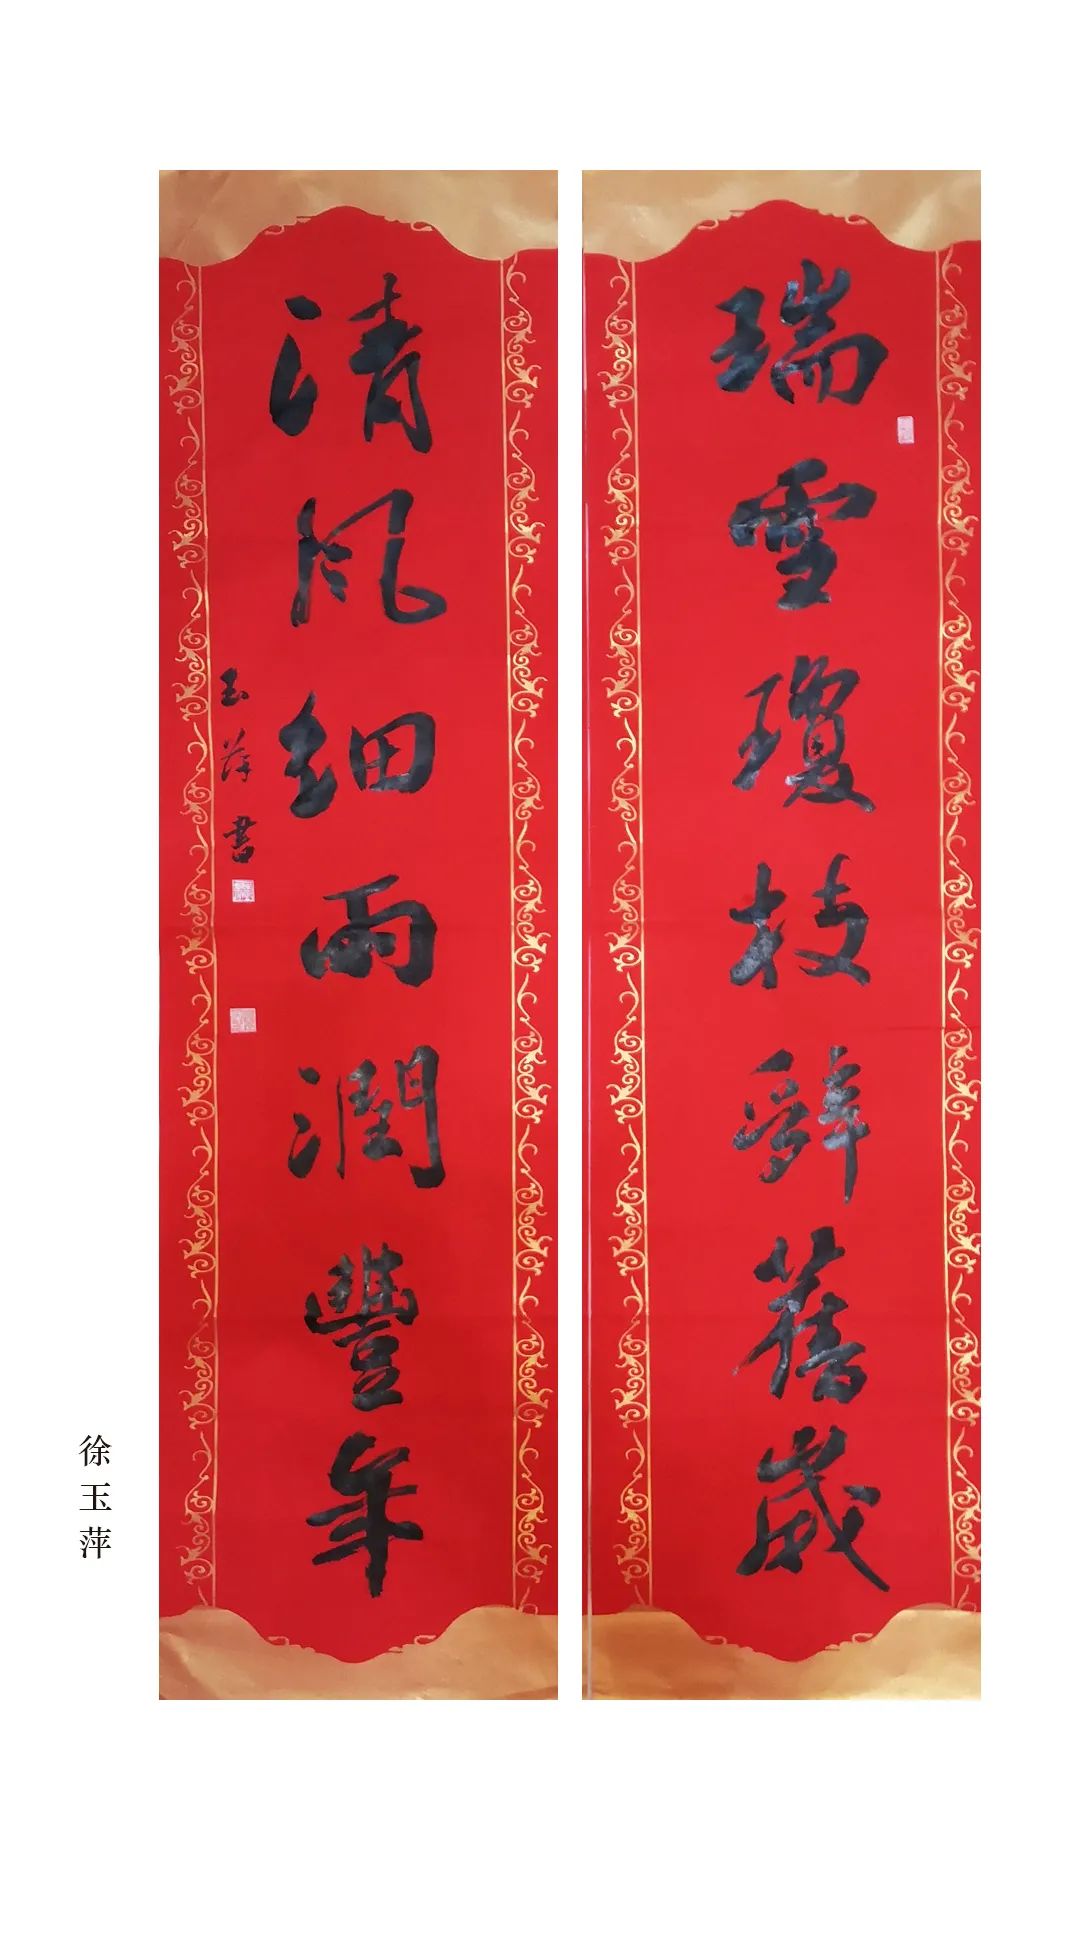 瑞雪瓊枝辭舊歲
清風細雨潤豐年
玉萍書
徐玉萍